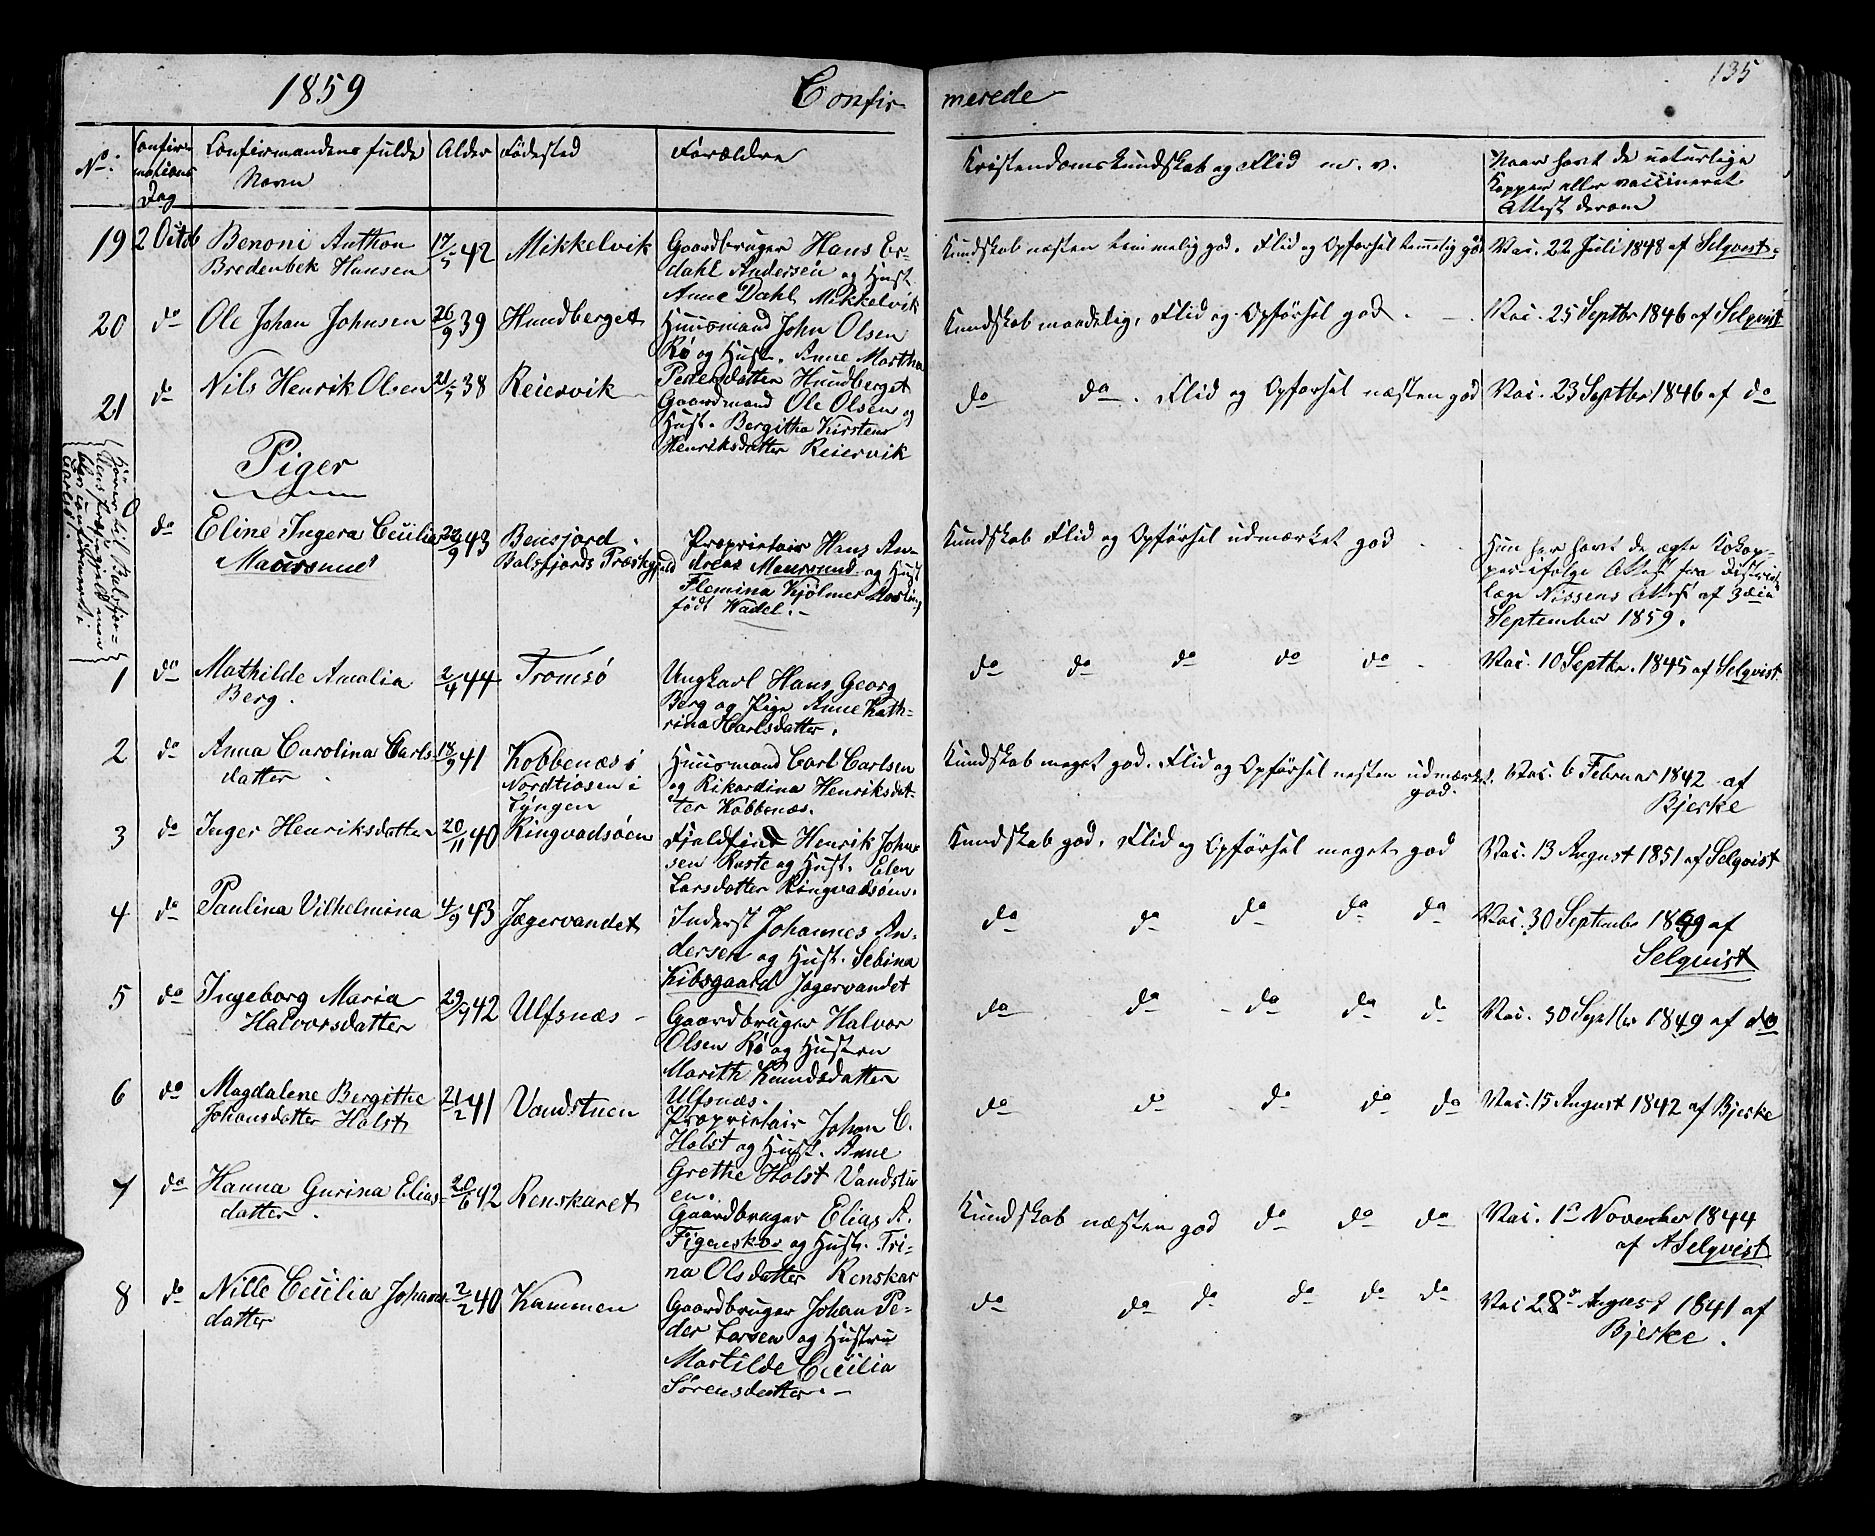 1859 Confirmerede 135
No. Confirmations Dag Confirmandens fulde Navn Alder Fødested Forældre Kristendomskundskab og Flid m. v. Naar havt de naturlige Kopper eller vaccineret Attest derom
19 2 Octob Benoni Anthon Bredenbek Hansen 17/5 42 Mikkelvik Gaardbruger Hans Erdahl Andersen og Hust. Anne Dahl Mikkelvik Kundskab næsten temmelig god. Flid og Opførsel temmelig god Vac. 22 Juli 1848 af Selqvist
20 do Ole Johan Johnsen 26/9 39 Hundberget Huusmand John Olsen Rø og Hust. Anne Martha Pedersdatter Hundberget Kundskab maadelig, Flid og Opførsel god Vac. 25 Septbr 1846 af Selqvist
21 do Nils Henrik Olsen 21/5 38 Reiervik Gaardmand Ole Olsen og Hust. Bergitha Kirstene Henriksdatter Reiervik do do. Flid og Opførsel næsten god Vac. 23 Septbr 1846 af do
Piger
Hører til Balsfjordens Præstegjeld men blev confirmeret i Carlsø.
do Eline Ingera Cecilia Maursund 9 43 Bensjord Balsfjords Præstegjeld Proprietair Hans Andreas Maursund og Hust Flemina Kjølmer født Wadel. Kundskab Flid og Opførsel udmærket god Hun har havt de ægte Kokopper ifølge Attest fra Districtslæge Nissens Attest af 3die September 1859.
1 do Mathilde Amalia Berg. 2/4 44 Tromsø Ungkarl Hans Georg Berg og Pige Anne Kathrina Carlsdatter. do do do do do Vac. 10 Septbr. 1845 af Selqvist
2 do Anna Carolina Carlsdatter 18/9 41 Kobbenæs i Nordtiosen i Lyngen Huusmand Carl Carlsen og Rikardina Henriksdatter Kobbenæs. Kundskab meget god. Flid og Opførsel næsten udmærket god. Vac. 6 Februar 1842 af Bjerke
3 do Inger Henriksdatter 20/11 40 Ringvadsøen Fjeldfind Henrik Johnsen Raste og Hust. Elen Larsdatter Ringvadsøen. Kundskab god. Flid og Opførsel meget god Vac. 13 August 1851 af Selqvist
4 do Paulina Vilhelmina 4/9 43 Jægervandet Inderst Johannes Andersen og Hust. Sebina Kibsgaard Jægervandet do do do do do Vac. 30 September 1849 af Selqvist
5 do Ingeborg Maria Halvorsdatter 29/7 42 Ulfsnæs Gaardbruger Halvor Olsen Rø og Hustru Marith Knudsdatter Ulfsnæs. do do do do do Vac. 30 Septbr 1849 af do
6 do Magdalene Bergithe Johansdatter Holst 21/2 41 Vandstuen Proprietair Johan C. Holst og Hust. Anne Grethe Holst Vandstuen. do do do do do Vac. 15 August 1842 af Bjerke
7 do Hanna Gurina Eliasdatter. 20/6 42 Renskaret Gaardbruger Elias A. Figenskov og Hust. Trina Olsdatter Renskar Kundskab næsten god do do do Vac. 1ste November 1844 af A Selqvist
8 do Nille Cecilia Johansdatter 2/2 40 Kammen Gaardbruger Johan Peder Larsen og Hustru Martilde Cecilia Sørensdatter. do do do do do do Vac 28de August 1841 af Bjerke.